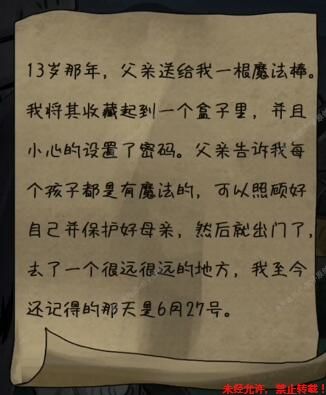 13岁那年，父亲送给我一根魔法棒。
我将其收藏起到一个盒子里，并且
小心的设置了密码。父亲告诉我每
个孩子都是有魔法的，可以照顾好
自己并保护好母亲，然后就出门了，
去了一个很远很远的地方，我至今
还记得的那天是6月27号。
未经允许，禁止转载！